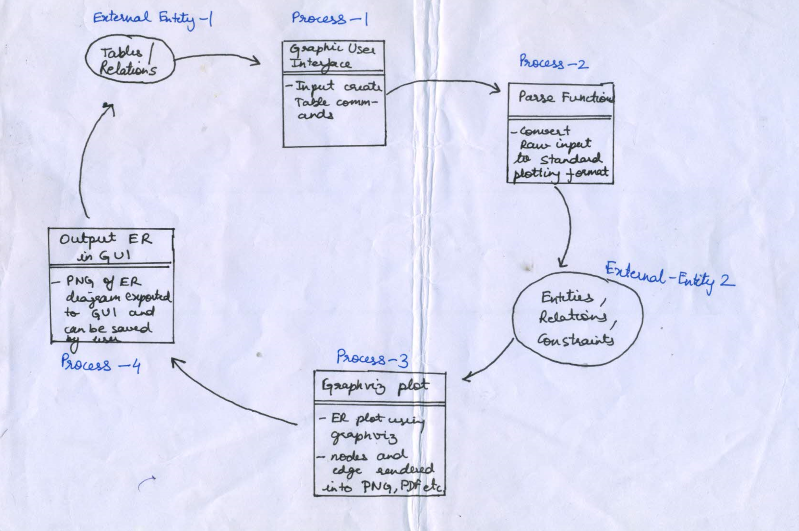 External Entity-1
Tables/
Relations
Process-1
Graphic User
Interface
- Input create
Table comm-
ands
Process-2
Parse Function
- Convert
Raw input
to standard
plotting format
External-Entity 2
Entities,
Relations,
Constraints
Process-3
Graphviz plot
- ER plot using
graphviz
- nodes and
edge rendered
into PNG, PDF etc.
Output ER
in GUI
- PNG of ER
diagram exported
to GUI and
can be saved
by user
Process-4